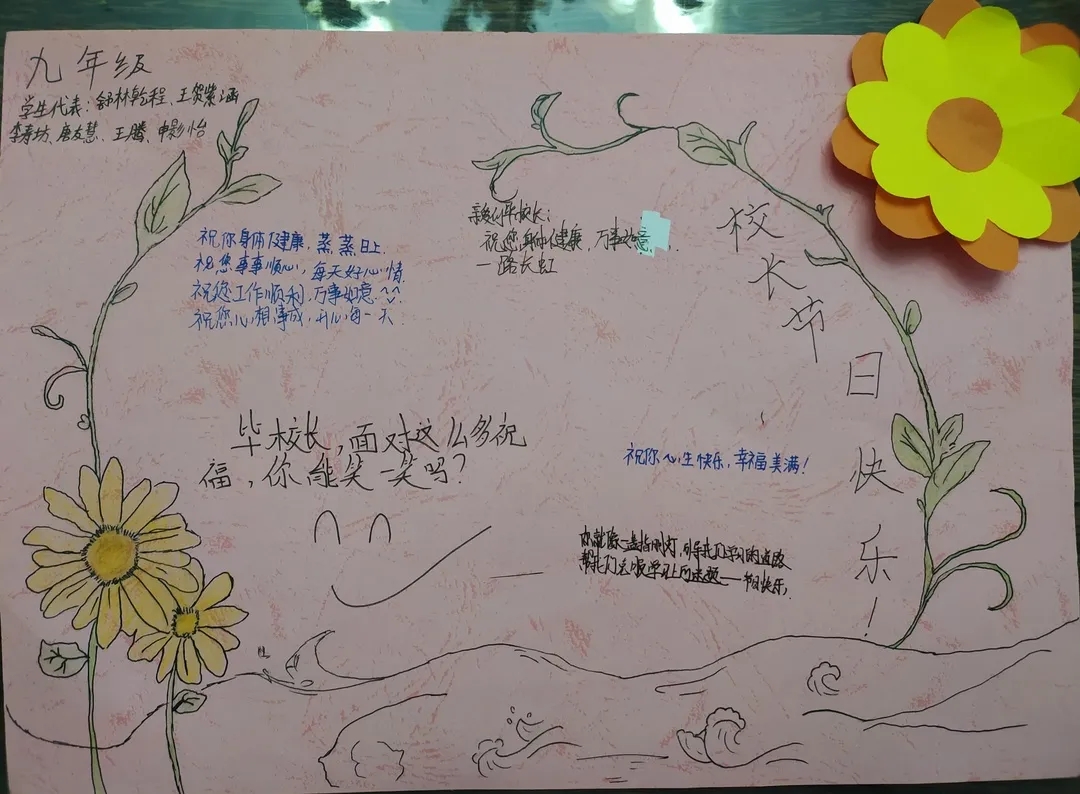 九年级
学生代表:舒林乾程、王贺紫涵
李寿坊、唐友慧、王腾、申影怡
祝你身体健康,蒸蒸日上.
祝您事事顺心,每天好心情.
祝您工作顺利,万事如意^^
祝您心想事成,开心每一天
校长:
祝您身体健康,万事如意
一路长虹
校长节日快乐!
毕校长,面对这么多祝
福,你能笑一笑吗?
祝你心生快乐,幸福美满!
你就像一盏指明灯,引导我们学习的道路
帮我们克服学习上的难题——节日快乐,